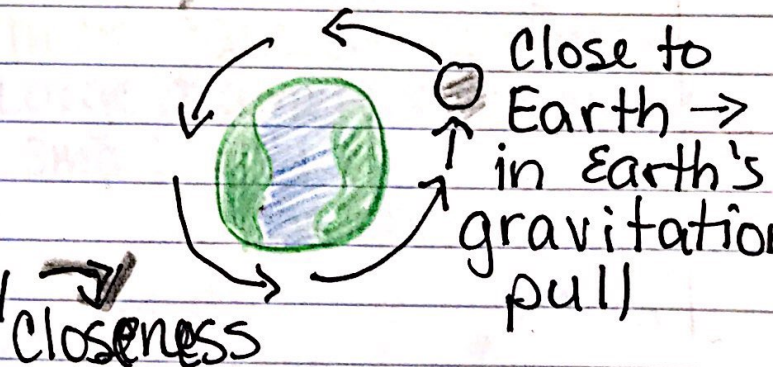 Close to
Earth →
in Earth's
gravitation
pull
closeness